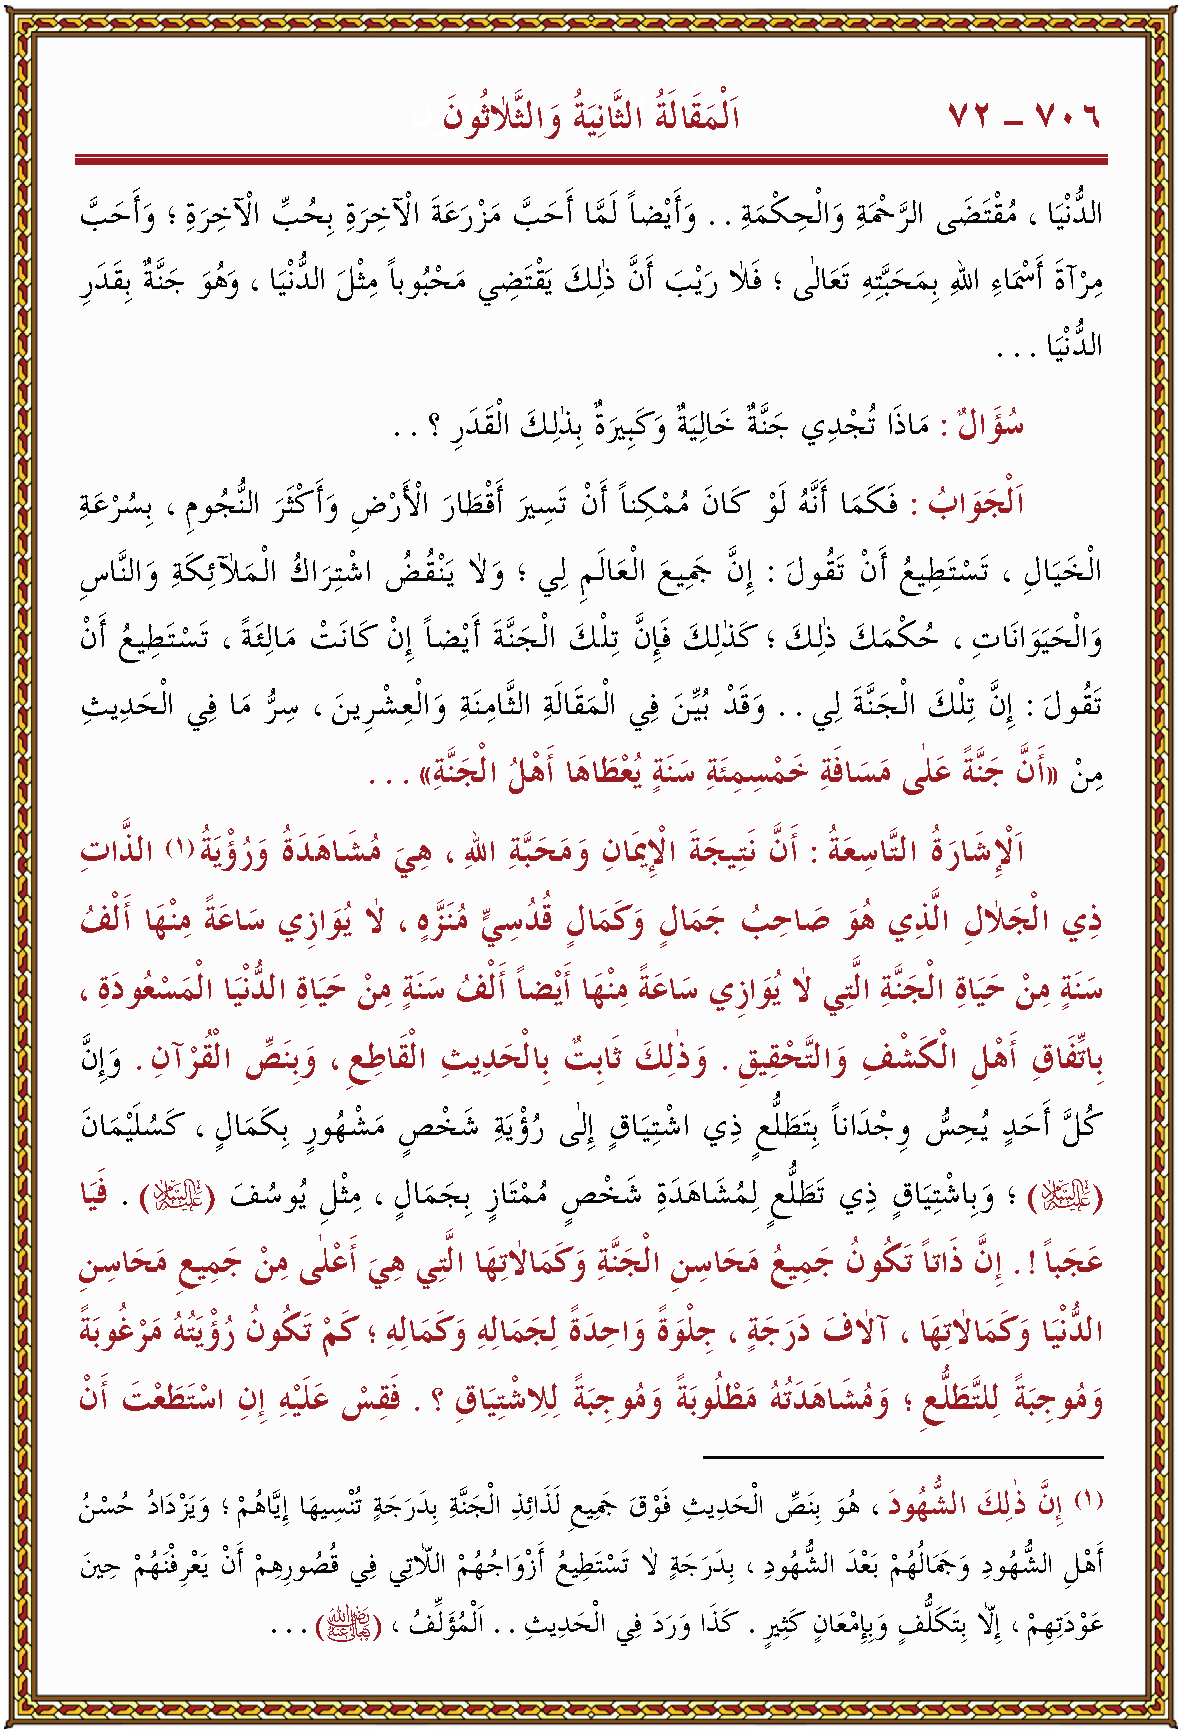 ٧٠٦ – ٧٢ اَلْمَقَالَةُ الثَّانِيَةُ وَالثَّلَاثُونَ
الدُّنْيَا ، مُقْتَضَى الرَّحْمَةِ وَالْحِكْمَةِ . . وَأَيْضاً لَمَّا أَحَبَّ مَزْرَعَةَ الْآخِرَةِ بِحُبِّ الْآخِرَةِ ؛ وَأَحَبَّ
مِرْآةَ أَسْمَاءِ اللهِ بِمَحَبَّتِهِ تَعَالَى ؛ فَلَا رَيْبَ أَنَّ ذٰلِكَ يَقْتَضِي مَحْبُوباً مِثْلَ الدُّنْيَا ، وَهُوَ جَنَّةٌ بِقَدَرِ
الدُّنْيَا . . .
سُؤَالٌ : مَاذَا تُجْدِي جَنَّةٌ خَالِيَةٌ وَكَبِيرَةٌ بِذٰلِكَ الْقَدَرِ ؟ . .
اَلْجَوَابُ : فَكَمَا أَنَّهُ لَوْ كَانَ مُمْكِناً أَنْ تَسِيرَ أَقْطَارَ الْأَرْضِ وَأَكْثَرَ النُّجُومِ ، بِسُرْعَةِ
الْخَيَالِ ، تَسْتَطِيعُ أَنْ تَقُولَ : إِنَّ جَمِيعَ الْعَالَمِ لِي ؛ وَلَا يَنْقُضُ اشْتِرَاكُ الْمَلٰٓائِكَةِ وَالنَّاسِ
وَالْحَيَوَانَاتِ ، حُكْمَكَ ذٰلِكَ ؛ كَذٰلِكَ فَإِنَّ تِلْكَ الْجَنَّةَ أَيْضاً إِنْ كَانَتْ مَالِئَةً ، تَسْتَطِيعُ أَنْ
تَقُولَ : إِنَّ تِلْكَ الْجَنَّةَ لِي . . وَقَدْ بُيِّنَ فِي الْمَقَالَةِ الثَّامِنَةِ وَالْعِشْرِينَ ، سِرُّ مَا فِي الْحَدِيثِ
مِنْ «أَنَّ جَنَّةً عَلٰى مَسَافَةِ خَمْسِمِئَةِ سَنَةٍ يُعْطَاهَا أَهْلُ الْجَنَّةِ» . . .
اَلْإِشَارَةُ التَّاسِعَةُ : أَنَّ نَتِيجَةَ الْإِيمَانِ وَمَحَبَّةِ اللهِ ، هِيَ مُشَاهَدَةُ وَرُؤْيَةُ(١) الذَّاتِ
ذِي الْجَلَالِ الَّذِي هُوَ صَاحِبُ جَمَالٍ وَكَمَالٍ قُدْسِيٍّ مُنَزَّهٍ ، لَا يُوَازِي سَاعَةً مِنْهَا أَلْفُ
سَنَةٍ مِنْ حَيَاةِ الْجَنَّةِ الَّتِي لَا يُوَازِي سَاعَةً مِنْهَا أَيْضاً أَلْفُ سَنَةٍ مِنْ حَيَاةِ الدُّنْيَا الْمَسْعُودَةِ ،
بِاتِّفَاقِ أَهْلِ الْكَشْفِ وَالتَّحْقِيقِ . وَذٰلِكَ ثَابِتٌ بِالْحَدِيثِ الْقَاطِعِ ، وَبِنَصِّ الْقُرْآنِ . وَإِنَّ
كُلَّ أَحَدٍ يُحِسُّ وِجْدَاناً بِتَطَلُّعٍ ذِي اشْتِيَاقٍ إِلٰى رُؤْيَةِ شَخْصٍ مَشْهُورٍ بِكَمَالٍ ، كَسُلَيْمَانَ
(عَلَيْهِ السَّلَامُ) ؛ وَبِاشْتِيَاقٍ ذِي تَطَلُّعٍ لِمُشَاهَدَةِ شَخْصٍ مُمْتَازٍ بِجَمَالٍ ، مِثْلِ يُوسُفَ (عَلَيْهِ السَّلَامُ) . فَيَا
عَجَباً ! . إِنَّ ذَاتاً تَكُونُ جَمِيعُ مَحَاسِنِ الْجَنَّةِ وَكَمَالَاتِهَا الَّتِي هِيَ أَعْلٰى مِنْ جَمِيعِ مَحَاسِنِ
الدُّنْيَا وَكَمَالَاتِهَا ، آلَافَ دَرَجَةٍ ، جِلْوَةً وَاحِدَةً لِجَمَالِهِ وَكَمَالِهِ ؛ كَمْ تَكُونُ رُؤْيَتُهُ مَرْغُوبَةً
وَمُوجِبَةً لِلتَّطَلُّعِ ؛ وَمُشَاهَدَتُهُ مَطْلُوبَةً وَمُوجِبَةً لِلِاشْتِيَاقِ ؟ . فَقِسْ عَلَيْهِ إِنِ اسْتَطَعْتَ أَنْ
(١) إِنَّ ذٰلِكَ الشُّهُودَ ، هُوَ بِنَصِّ الْحَدِيثِ فَوْقَ جَمِيعِ لَذَائِذِ الْجَنَّةِ بِدَرَجَةٍ تُنْسِيهَا إِيَّاهُمْ ؛ وَيَزْدَادُ حُسْنُ
أَهْلِ الشُّهُودِ وَجَمَالُهُمْ بَعْدَ الشُّهُودِ ، بِدَرَجَةٍ لَا تَسْتَطِيعُ أَزْوَاجُهُمْ اللَّاتِي فِي قُصُورِهِمْ أَنْ يَعْرِفْنَهُمْ حِينَ
عَوْدَتِهِمْ ، إِلَّا بِتَكَلُّفٍ وَبِإِمْعَانٍ كَثِيرٍ . كَذَا وَرَدَ فِي الْحَدِيثِ . . اَلْمُؤَلِّفُ ، (رَضِيَ اللهُ تَعَالَى عَنْهُ) . . .